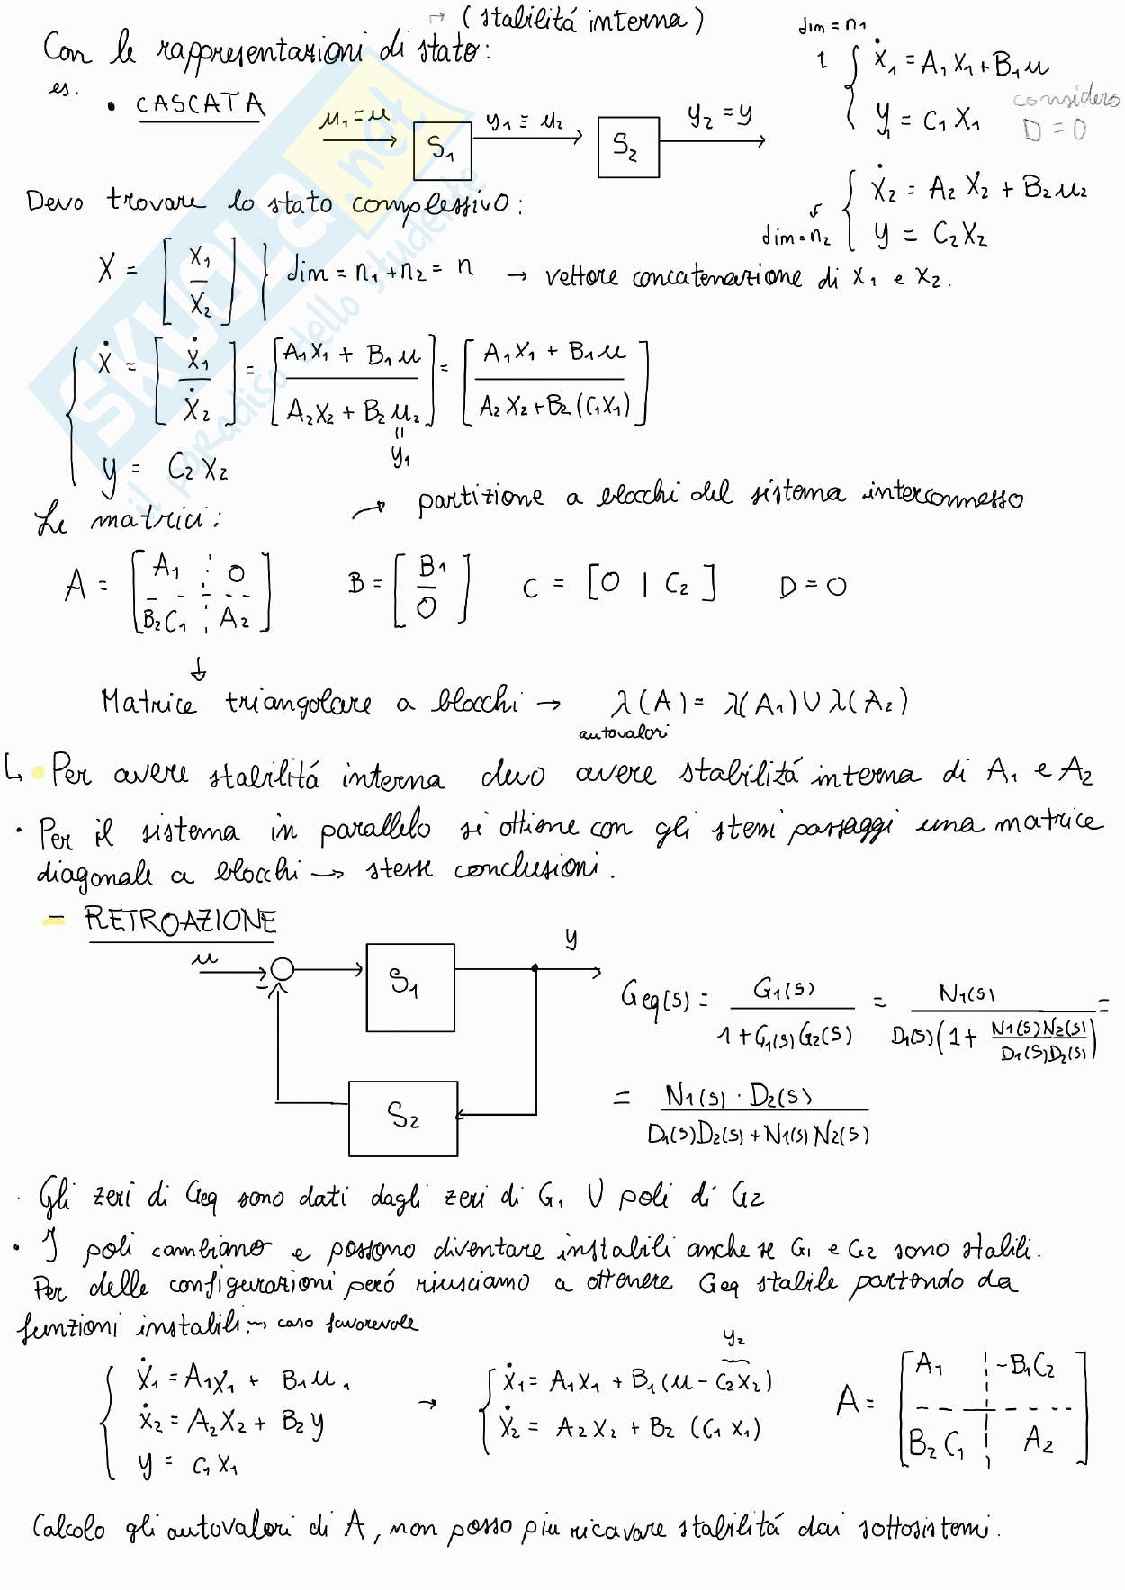 → (stabilitá interna)
Con le rappresentazioni di stato:
es.
• CASCATA
u₁ = u
S₁
y₁ ≡ u₂
S₂
y₂ = y
dim = n₁
1 { ẋ₁ = A₁x₁ + B₁u
y₁ = C₁x₁
considero
D = 0
{ ẋ₂ = A₂x₂ + B₂u₂
dim = n₂
y = C₂x₂
Devo trovare lo stato complessivo:
X = [x₁ / x₂] } dim = n₁ + n₂ = n → vettore concatenazione di x₁ e x₂.
{ ẋ = [ẋ₁ / ẋ₂] = [A₁x₁ + B₁u / A₂x₂ + B₂u₂] = [A₁x₁ + B₁u / A₂x₂ + B₂(C₁x₁)]
"
y₁
y = C₂x₂
Le matrici:
→ partizione a blocchi del sistema interconnesso
A = [A₁ ¦ 0 / B₂C₁ ¦ A₂] B = [B₁ / 0] C = [0 | C₂] D = 0
↓
Matrice triangolare a blocchi → λ(A) = λ(A₁) ∪ λ(A₂)
autovalori
↳ • Per avere stabilitá interna devo avere stabilitá interna di A₁ e A₂
• Per il sistema in parallelo si ottiene con gli stessi passaggi una matrice
diagonale a blocchi → stesse conclusioni.
– RETROAZIONE
u
–
S₁
y
S₂
Geq(s) = G₁(s) / (1 + G₁(s)G₂(s)) = N₁(s) / (D₁(s)(1 + N₁(s)N₂(s) / D₁(s)D₂(s))) =
= N₁(s) · D₂(s) / (D₁(s)D₂(s) + N₁(s)N₂(s))
· Gli zeri di Geq sono dati dagli zeri di G₁ ∪ poli di G₂
• I poli cambiano e possono diventare instabili anche se G₁ e G₂ sono stabili.
Per delle configurazioni peró riusciamo a ottenere Geq stabile partendo da
funzioni instabili. → caso favorevole
{ ẋ₁ = A₁x₁ + B₁u₁
ẋ₂ = A₂x₂ + B₂y
y = C₁x₁
→
y₂
{ ẋ₁ = A₁x₁ + B₁(u - C₂x₂)
ẋ₂ = A₂x₂ + B₂(C₁x₁)
A = [A₁ ¦ -B₁C₂ / B₂C₁ ¦ A₂]
Calcolo gli autovalori di A, non posso piu ricavare stabilitá dai sottosistemi.
SKUOLA.net
il paradiso dello studente